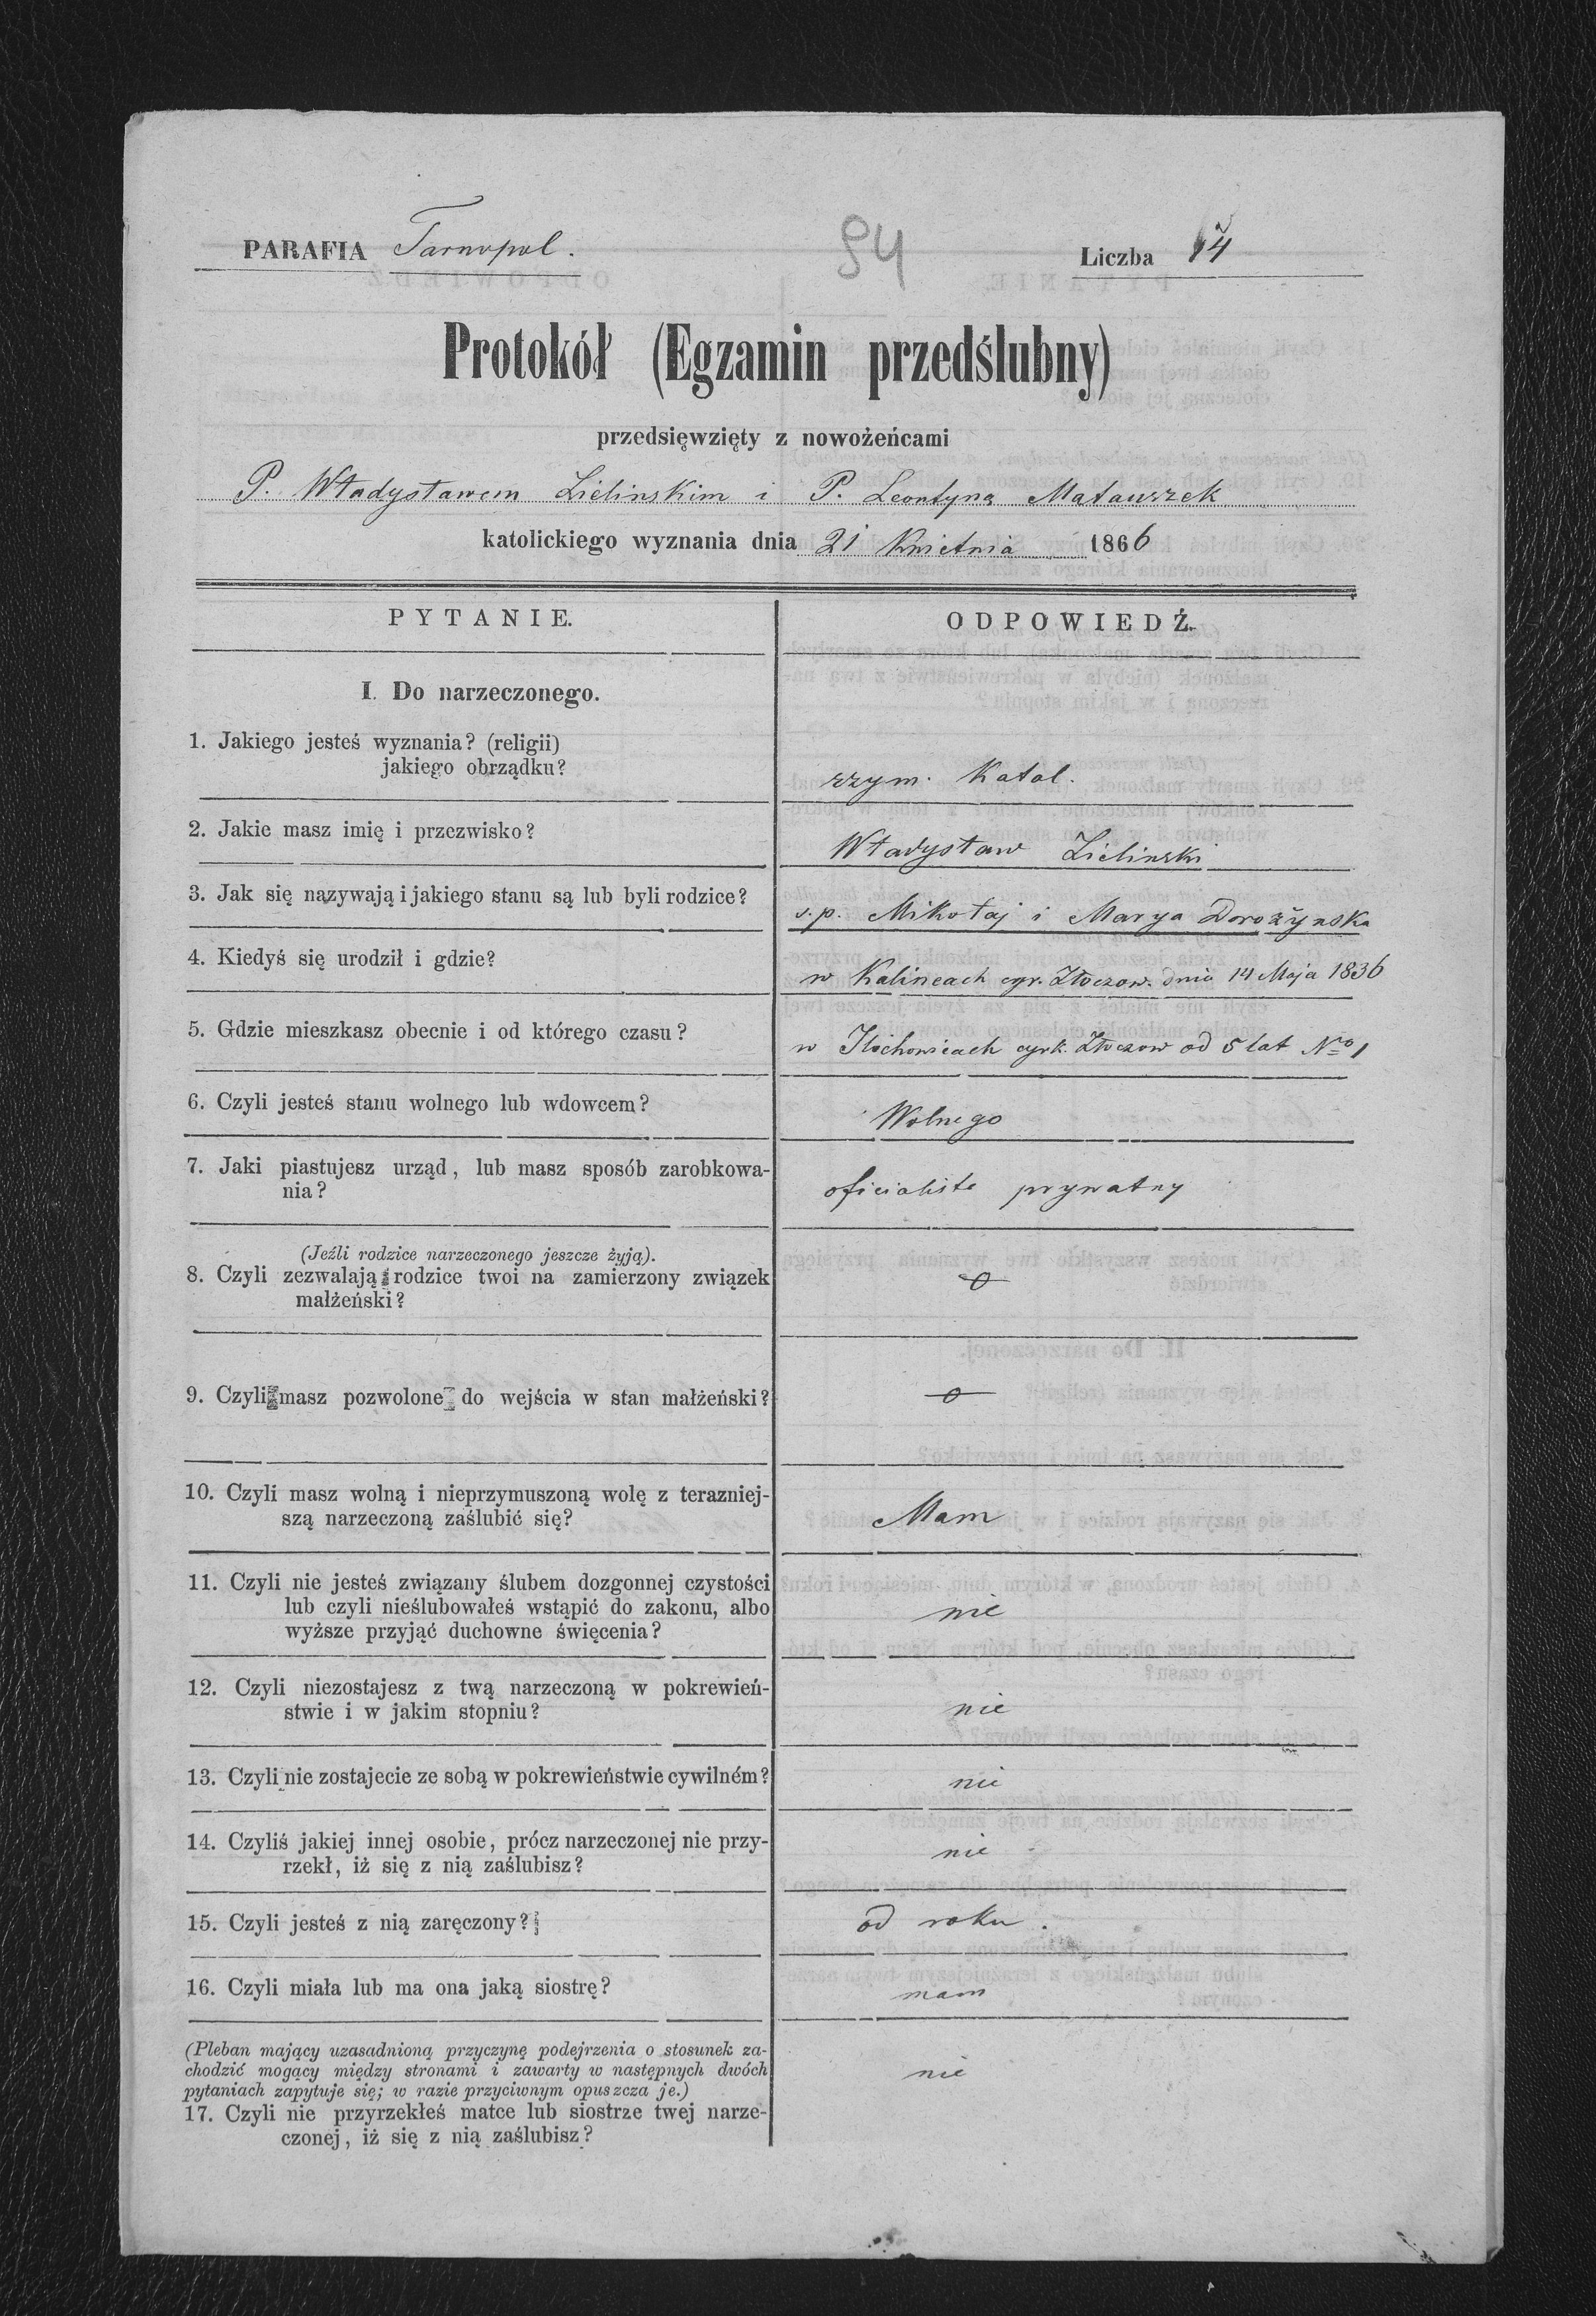 PARAFIA Tarnopol.
94
Liczba 14
Protokół (Egzamin przedślubny)
przedsięwzięty z nowożeńcami
P. Władysławem Zielinskim i P. Leontyną Matauszek
katolickiego wyznania dnia 21 Kwietnia 1866
PYTANIE.
ODPOWIEDŹ.
I. Do narzeczonego.
1. Jakiego jesteś wyznania? (religii)
jakiego obrządku?
rzym. Katol.
2. Jakie masz imię i przezwisko?
Władysław Zielinski
3. Jak się nazywają i jakiego stanu są lub byli rodzice?
s.p. Mikołaj i Marya Dorożynska
4. Kiedyś się urodził i gdzie?
w cyr. Złoczow. dnia 14 Maja 1836
5. Gdzie mieszkasz obecnie i od którego czasu?
w cyrk. Złoczow od 5 lat No 1
6. Czyli jesteś stanu wolnego lub wdowcem?
Wolnego
7. Jaki piastujesz urząd, lub masz sposób zarobkowa-
nia?
oficialista prywatny
(Jeźli rodzice narzeczonego jeszcze żyją).
8. Czyli zezwalają rodzice twoi na zamierzony związek
małżeński?
o
9. Czyli masz pozwolone do wejścia w stan małżeński?
o
10. Czyli masz wolną i nieprzymuszoną wolę z terazniej-
szą narzeczoną zaślubić się?
Mam
11. Czyli nie jesteś związany ślubem dozgonnej czystości
lub czyli nieślubowałeś wstąpić do zakonu, albo
wyższe przyjąć duchowne święcenia?
nie
12. Czyli niezostajesz z twą narzeczoną w pokrewień-
stwie i w jakim stopniu?
nie
13. Czyli nie zostajecie ze sobą w pokrewieństwie cywilném?
nie
14. Czyliś jakiej innej osobie, prócz narzeczonej nie przy-
rzekł, iż się z nią zaślubisz?
nie
15. Czyli jesteś z nią zaręczony?
od roku.
16. Czyli miała lub ma ona jaką siostrę?
mam
(Pleban mający uzasadnioną przyczynę podejrzenia o stosunek za-
chodzić mogący między stronami i zawarty w następnych dwóch
pytaniach zapytuje się; w razie przyciwnym opuszcza je.)
17. Czyli nie przyrzekłeś matce lub siostrze twej narze-
czonej, iż się z nią zaślubisz?
nie